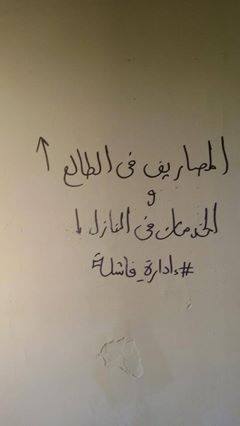 المصاريف فى الطالع ↑
و
الخدمات فى النازل ↓
#ادارة_فاشلة